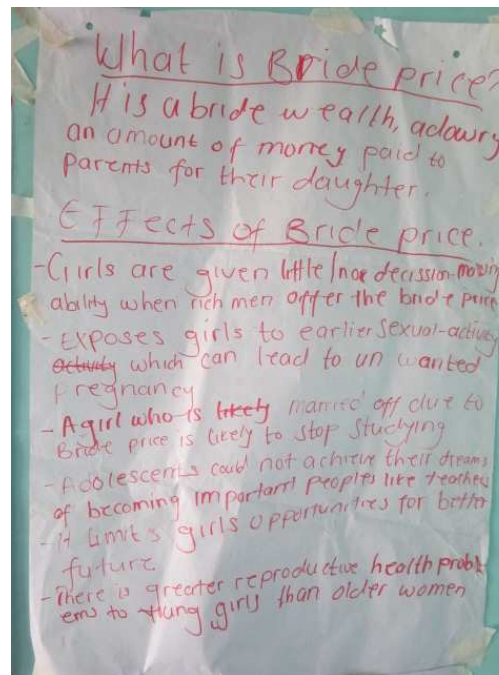 What is Bride price?
It is a bride wealth, adowry
an amount of money paid to
parents for their daughter.
Effects of Bride price.
-Girls are given little/noe decission-making
ability when rich men offer the bride price
- Exposes girls to earlier sexual-activity
activity which can lead to un wanted
pregnancy
- A girl who is likely married off due to
Bride price is likely to stop studying
- Adolescents could not achieve their dreams
of becoming important peoples like teachers
- it limit's girls opportunities for better
future
- There is greater reproductive health probl
ems to girls than older women